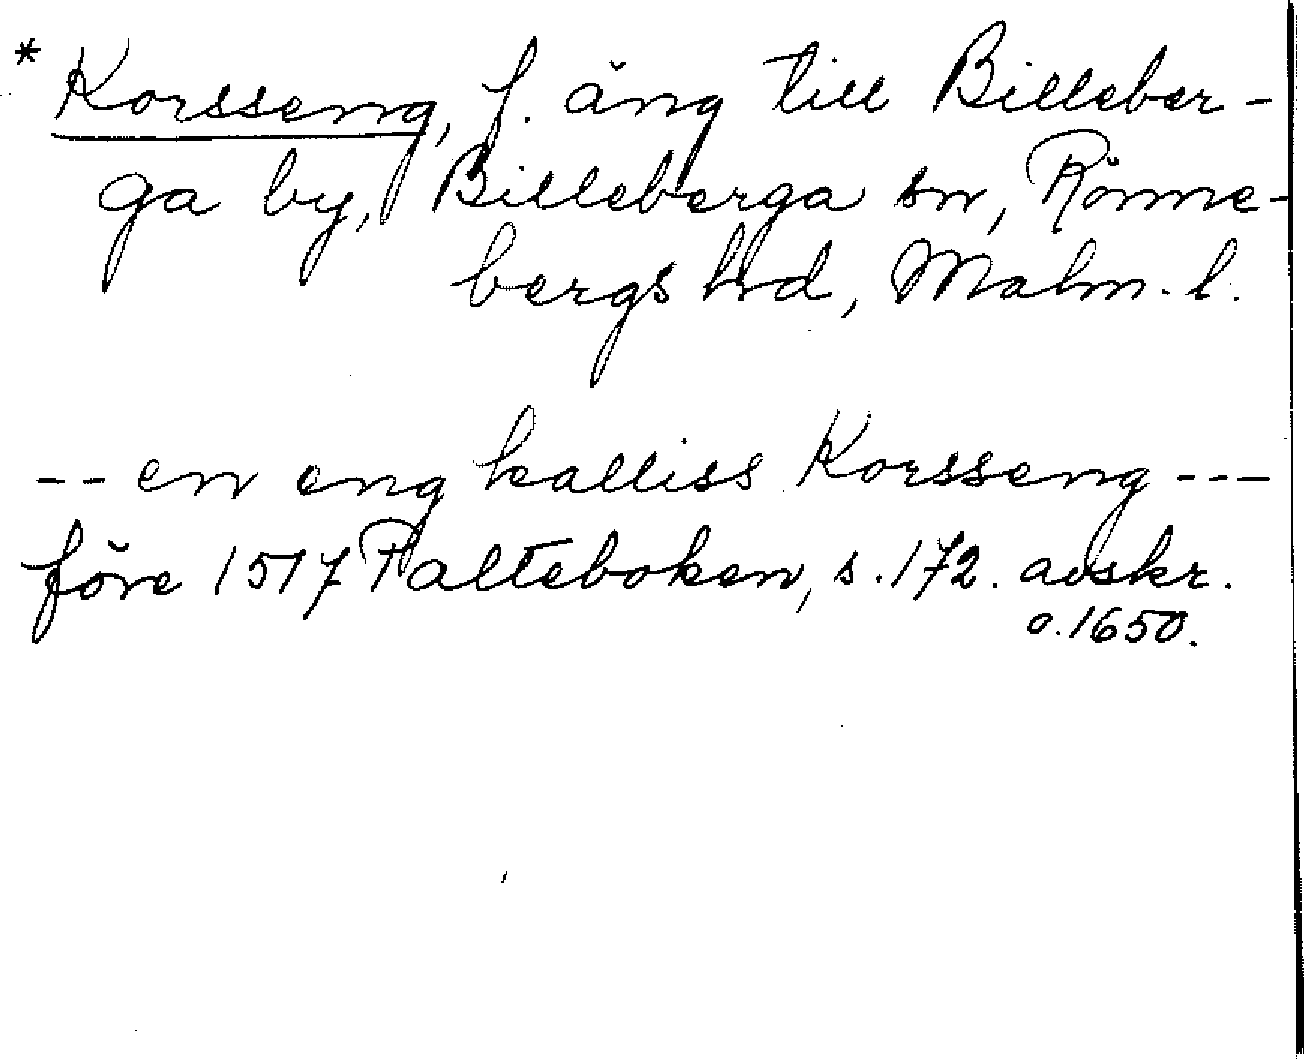 * Korsseng, f. äng till Billeber-
ga by, Billeberga sn, Rönne-
bergs hd, Malm. l.
-- en eng kalliss Korsseng ---
före 1517 Palteboken, s. 172. avskr.
o. 1650.